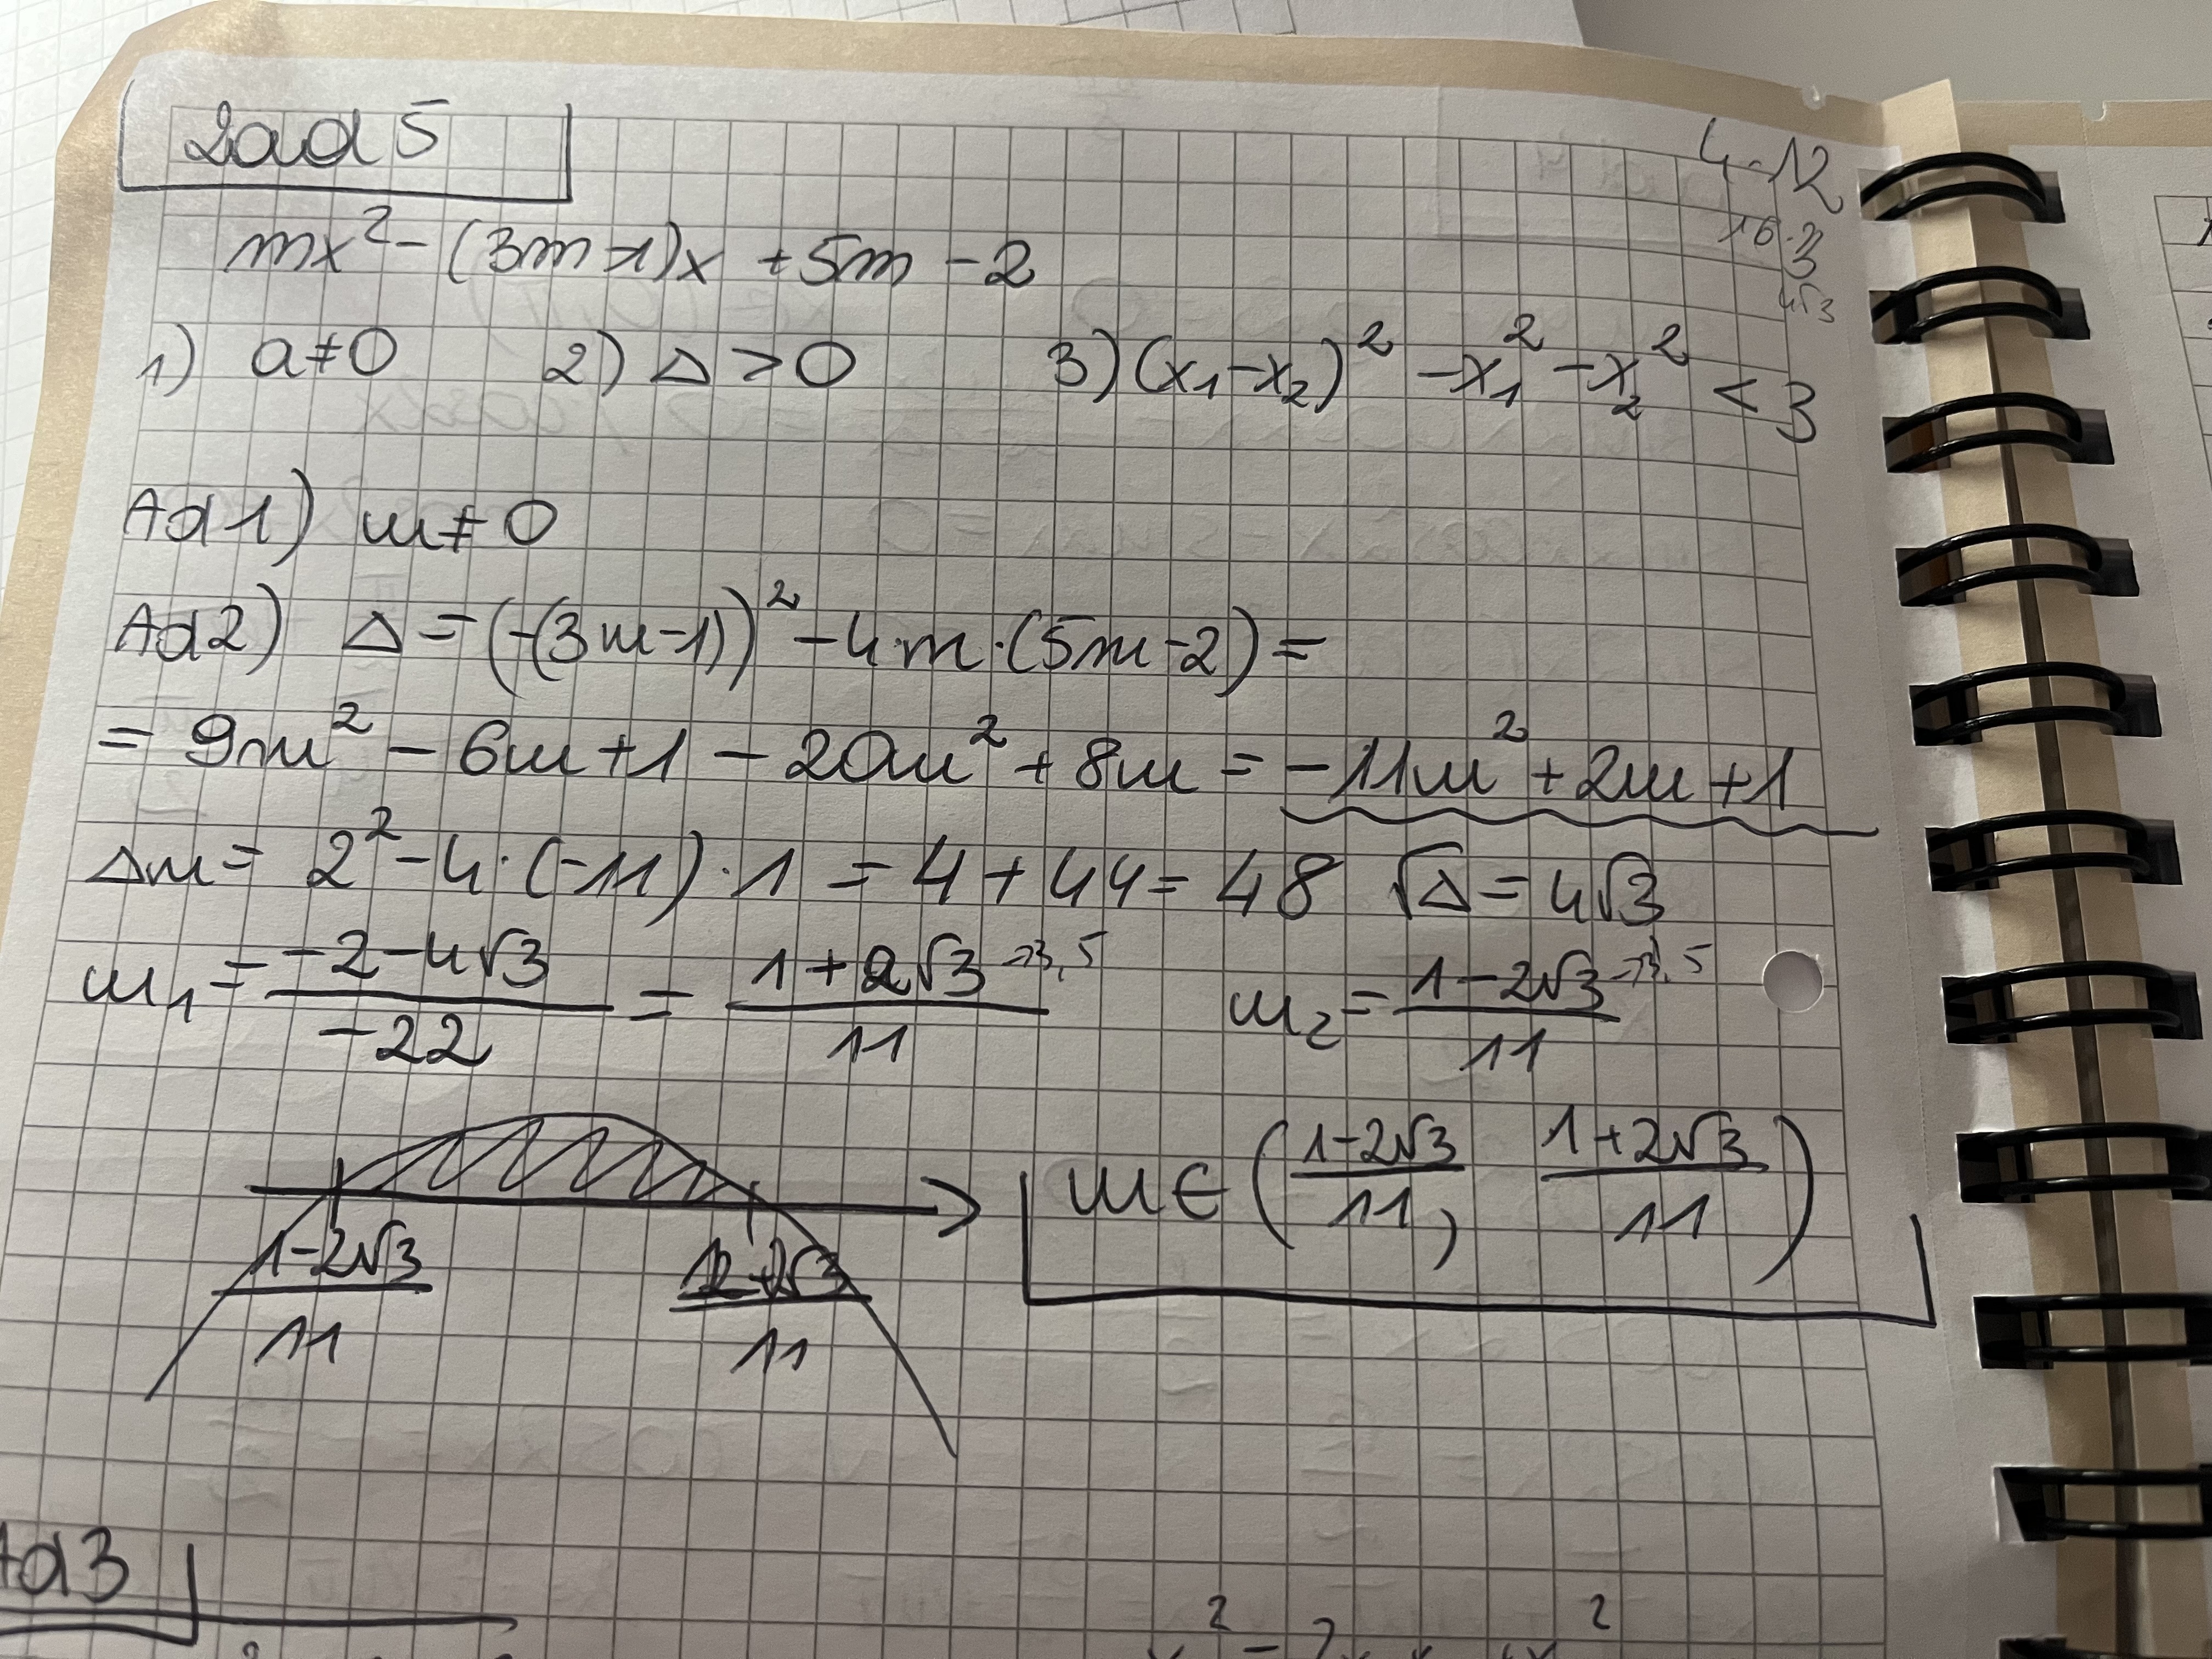 Zad 5
4·12
16·3
4√3
mx² - (3m-1)x + 5m - 2
1) a≠0 2) Δ > 0 3) (x₁-x₂)² - x₁² - x₂² < 3
Ad 1) m≠0
Ad 2) Δ = (-(3m-1))² - 4·m·(5m-2) =
= 9m² - 6m + 1 - 20m² + 8m = -11m² + 2m + 1
Δm = 2² - 4·(-11)·1 = 4 + 44 = 48 √Δ = 4√3
m₁ = (-2-4√3)/(-22) = (1+2√3)/11 →3,5 m₂ = (1-2√3)/11 →3,5
m∈((1-2√3)/11, (1+2√3)/11)
(1-2√3)/11 (1+2√3)/11
Ad3